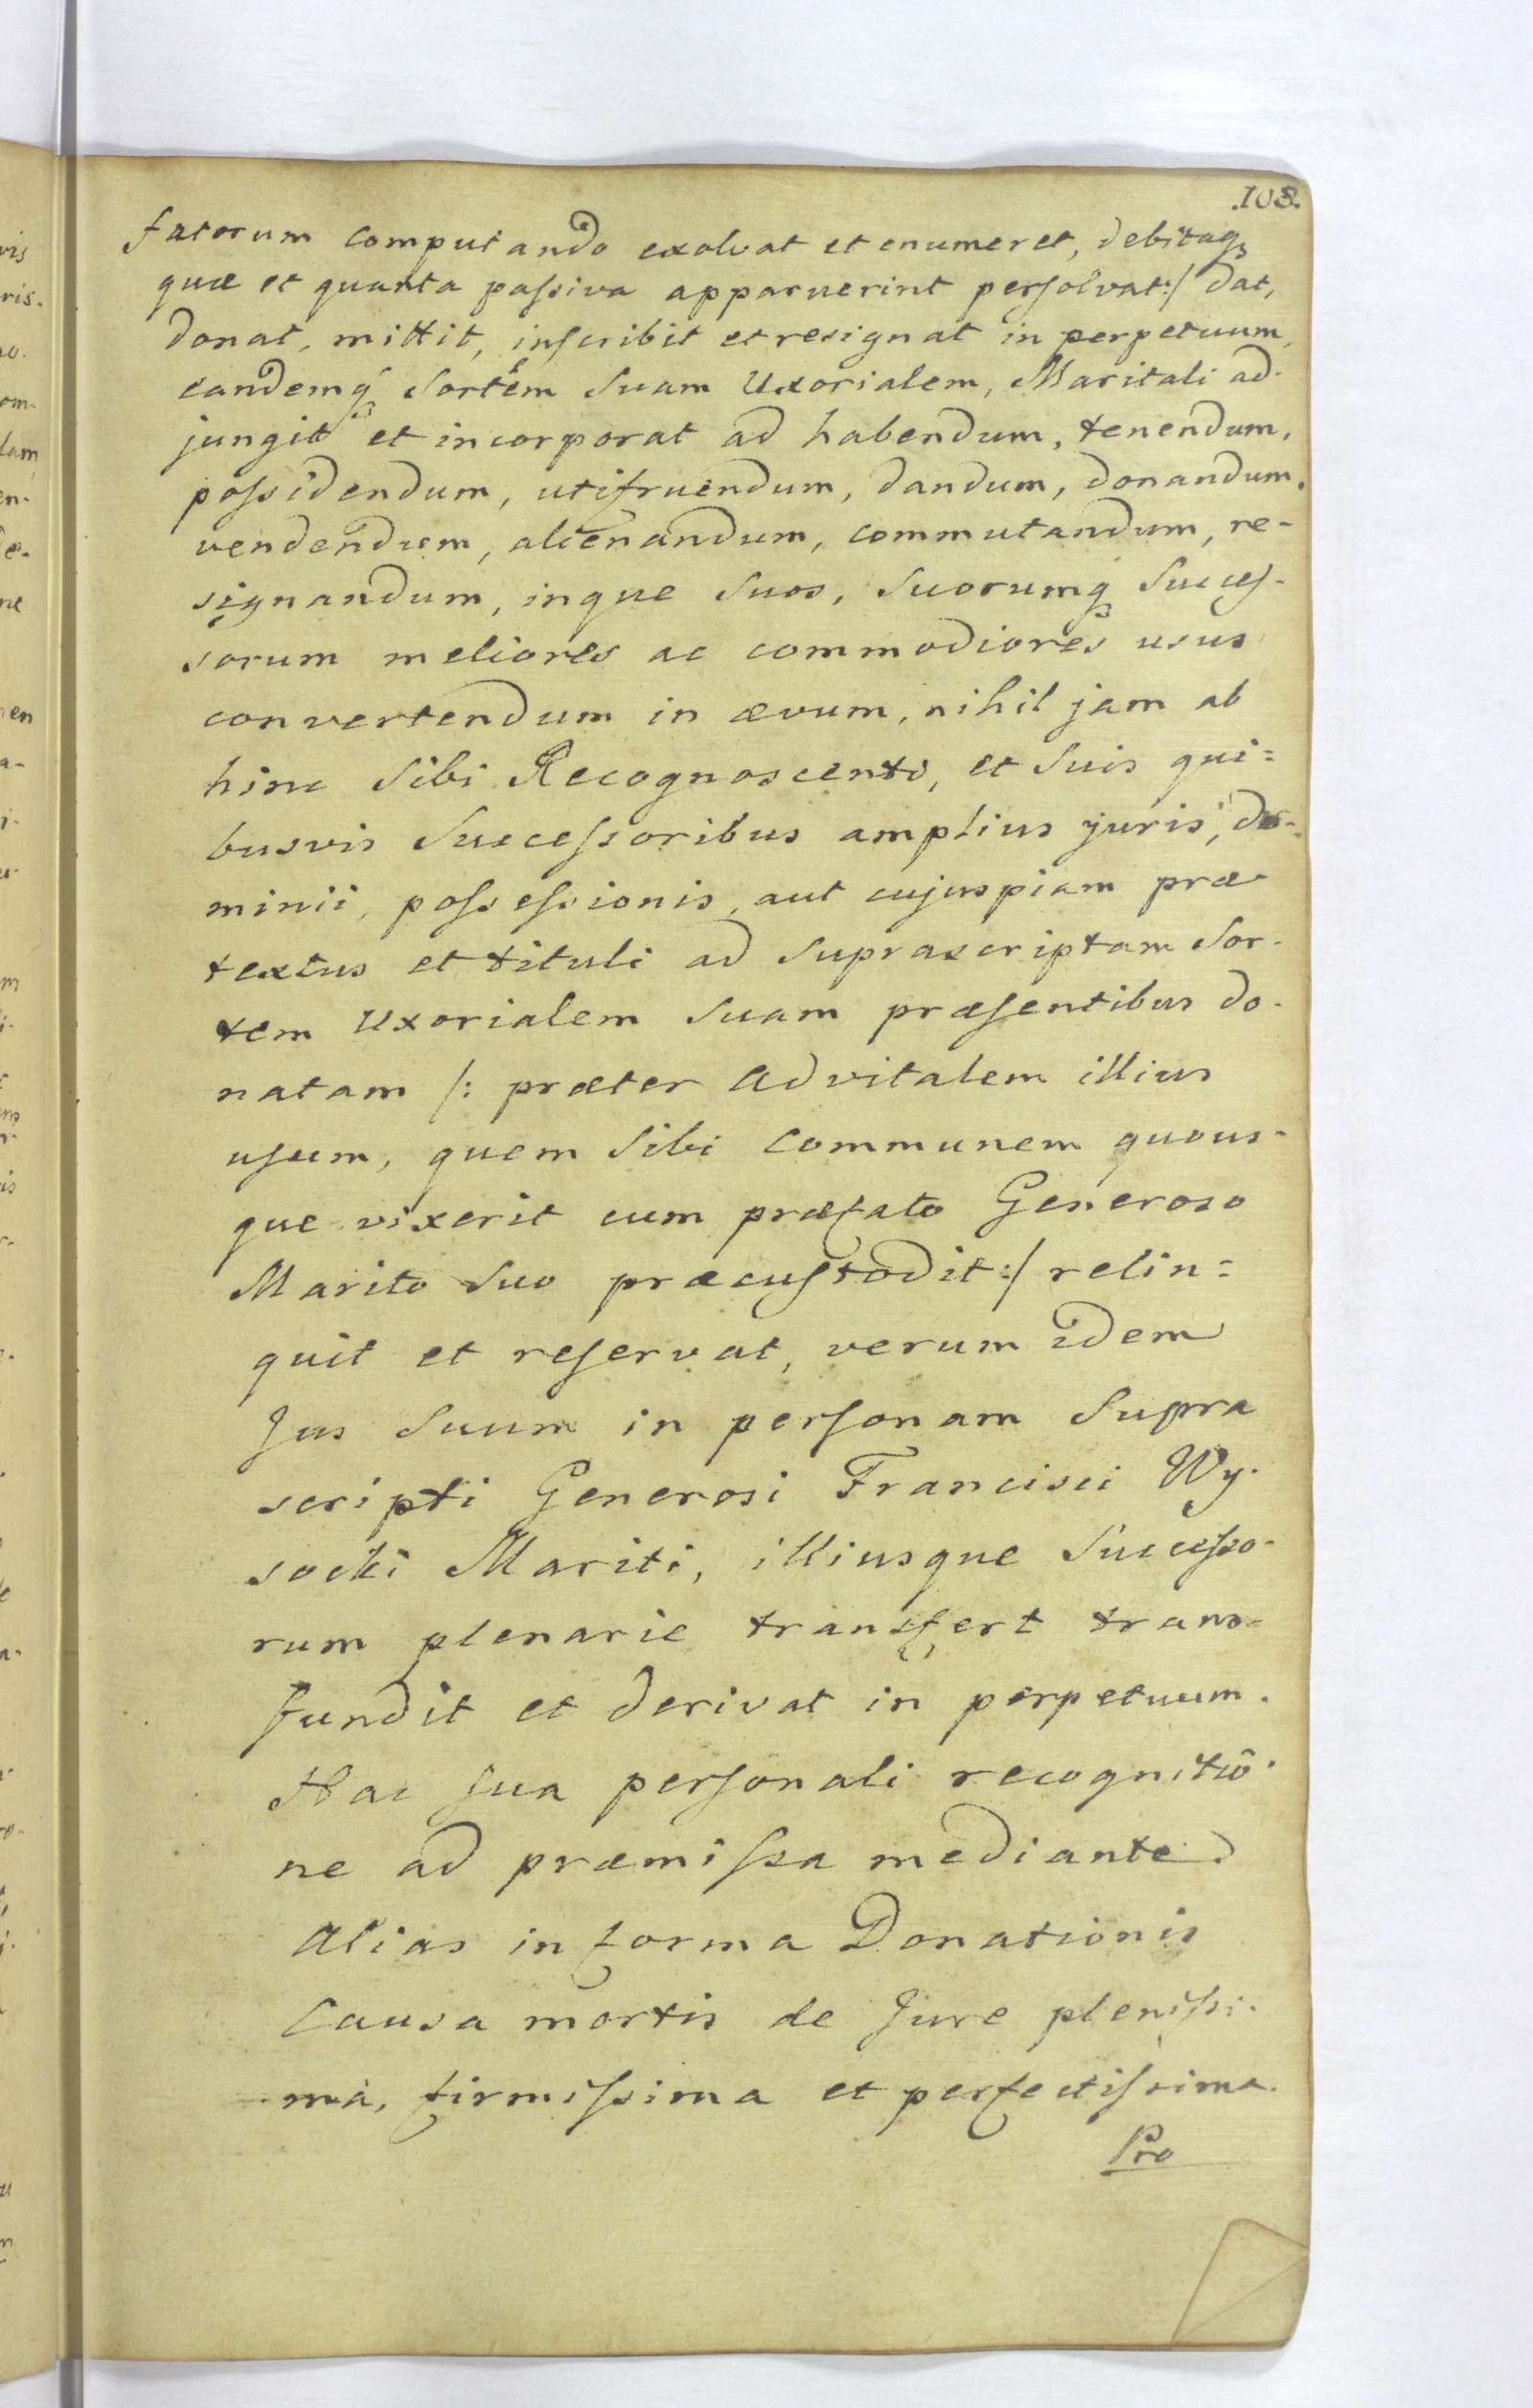 .108.
fatorum computando exolvat et enumeret, debitaq3
quæ et quanta paſsiva apparuerint perſolvat:/ dat,
donat, mittit, inſcribit et resignat in perpetuum,
eandemq3 Sortem Suam Uxorialem, Maritali ad-
jungit et incorporat ad habendum, tenendum,
poſsidendum, utifruendum, dandum, donandum,
vendendum, alienandum, commutandum, re-
signandum, inque Suos, Suorumq3 Succeſ-
sorum meliores ac commodiores usus
convertendum in ævum, nihil jam ab
hinc Sibi Recognoscenti, et Suis qui=
busvis Succeſsoribus amplius juris, do-
minii, poſseſsionis, aut cujuspiam præ
textus et tituli ad Suprascriptam Sor-
tem Uxorialem Suam præſentibus do-
natam /: præter advitalem illius
uſum, quem Sibi communem quous-
que vixerit cum præfato Generoso
Marito Suo præcuſtodit:/ relin=
quit et reſervat, verum idem
Jus Suum in perſonam Supra
scripti Generosi Francisci Wy-
socki Mariti, illiusque Succeſso-
rum plenarie transfert trans-
fundit et derivat in perpetuum.
Hac ſua perſonali recognitiõ-
ne ad præmiſsa mediante.
Alias in forma Donationis
Causa mortis de Jure pleniſsi-
ma, firmiſsima et perfectiſsima.
Pro